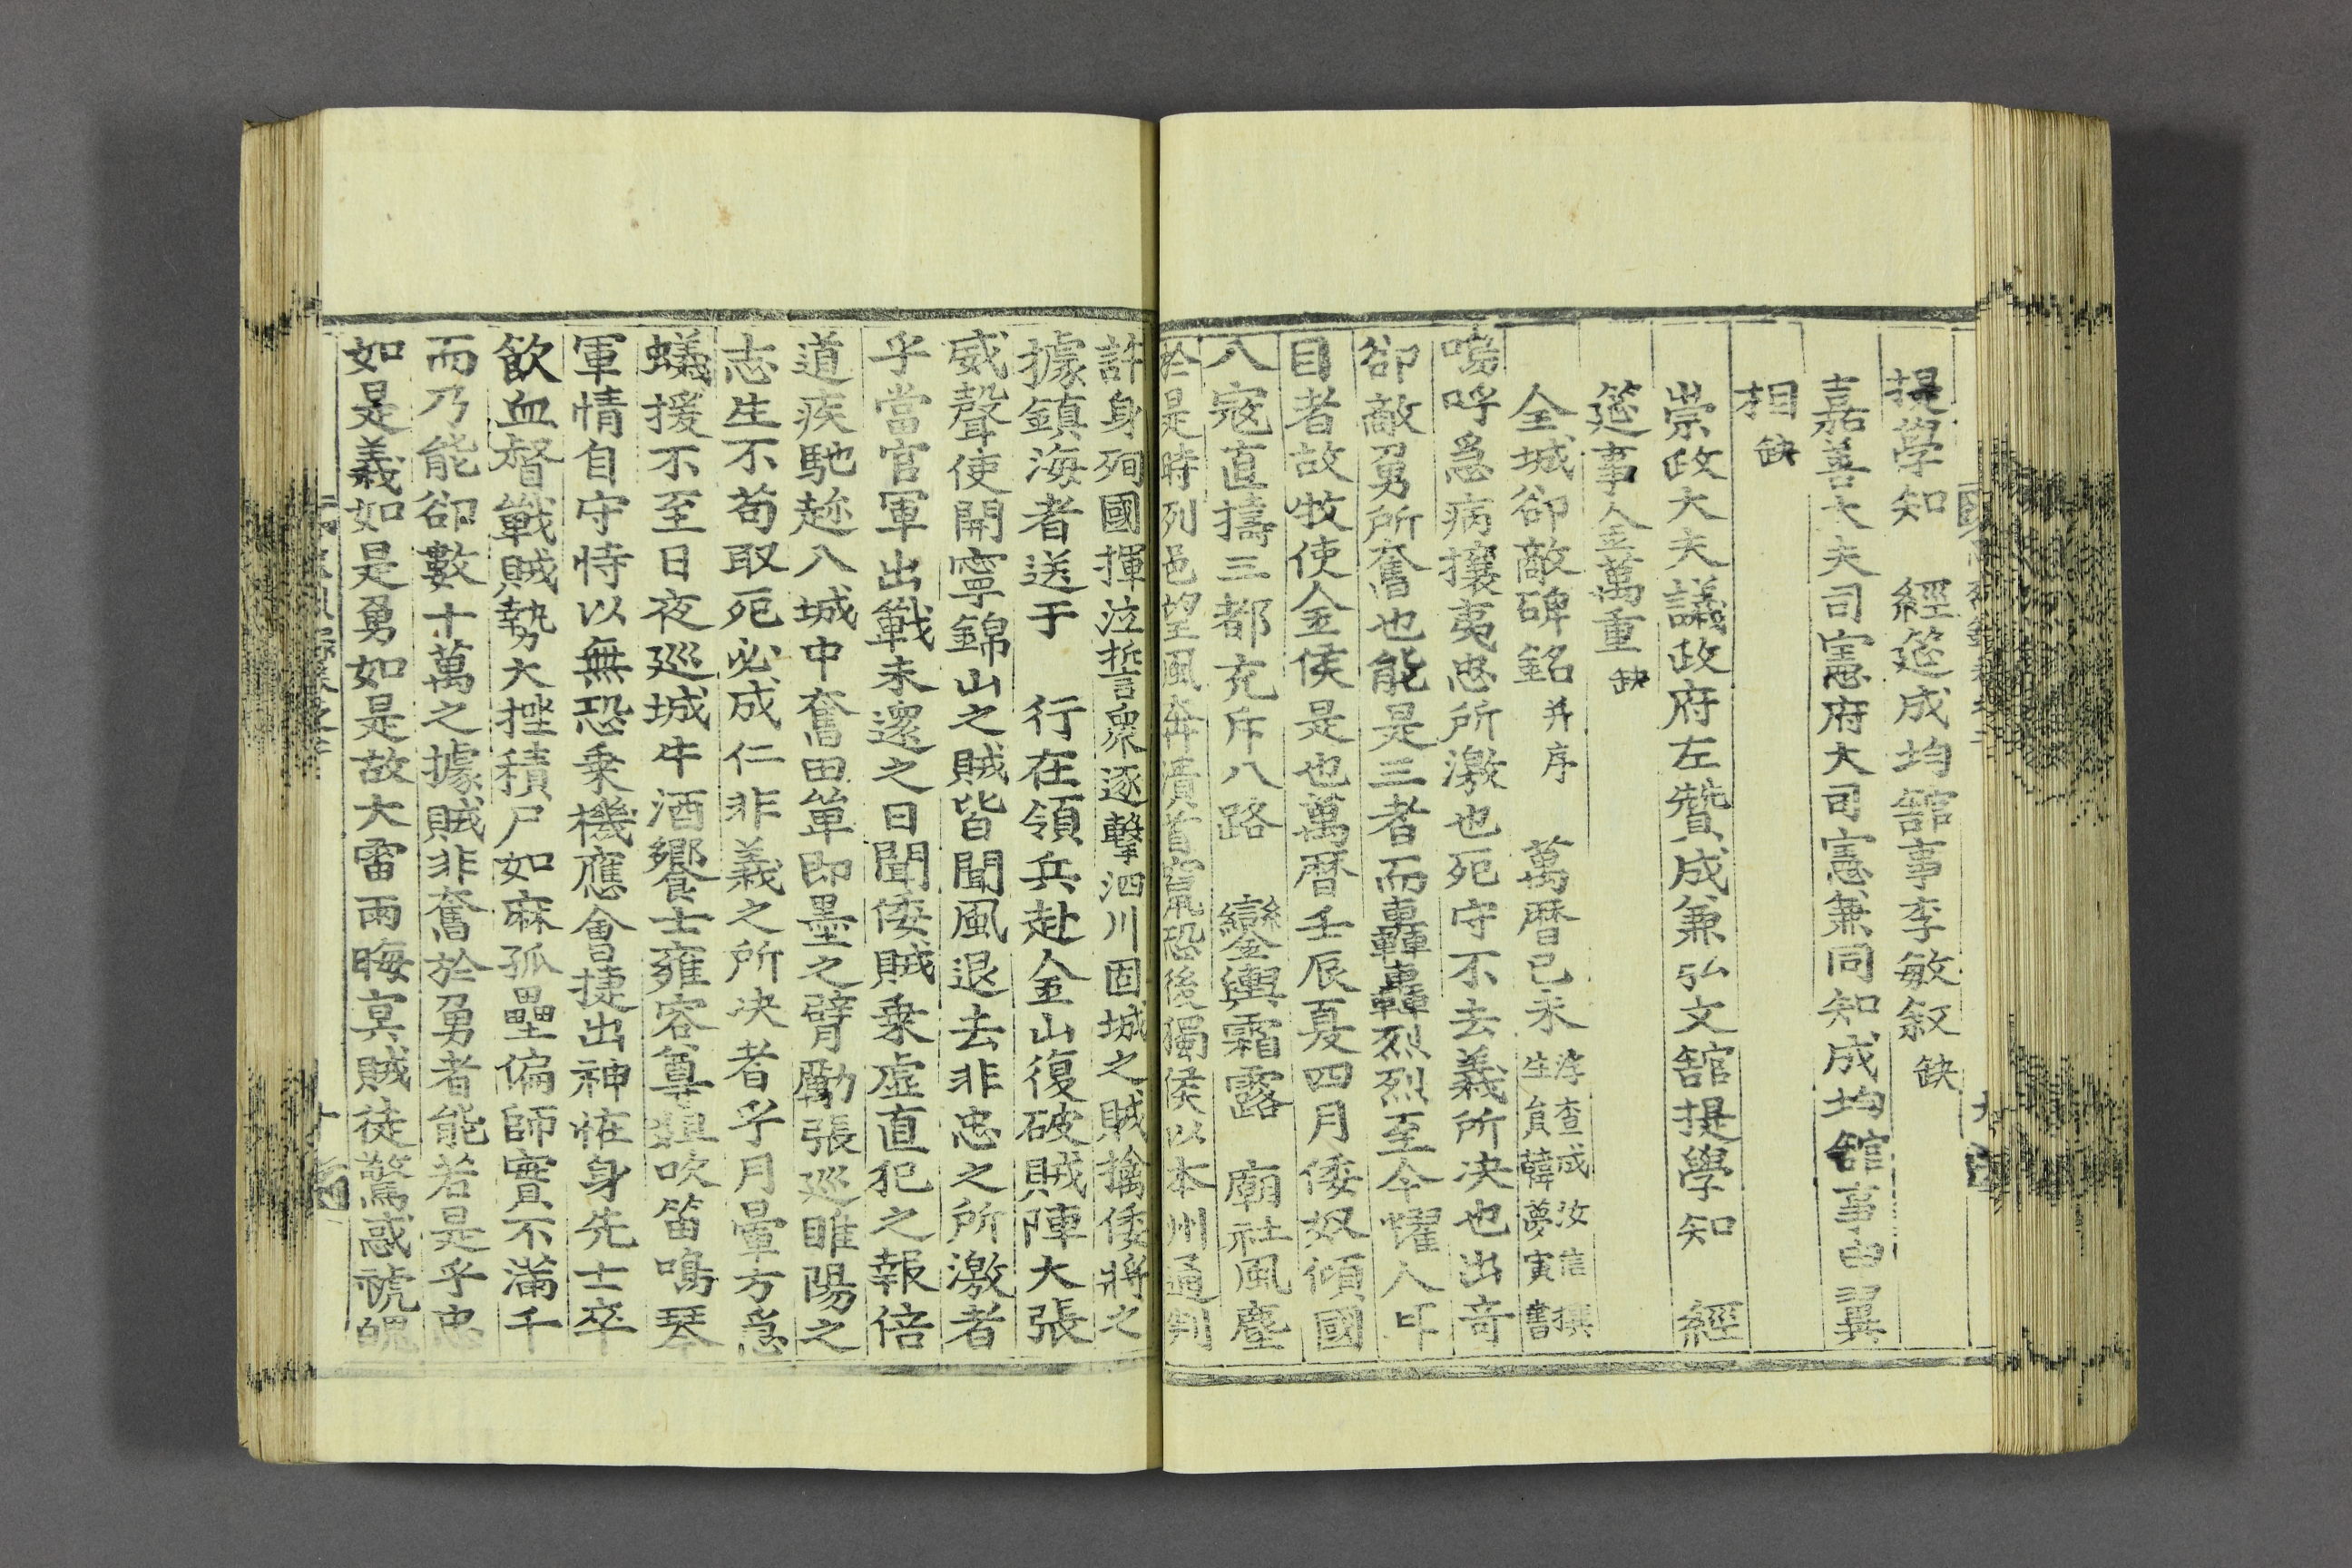 提學知　經筵成均館事李敏敍缺
嘉善大夫司憲府大司憲兼同知成均館事申翼
相缺
崇政大夫議政府左贊成兼弘文館提學知　經
筵事金萬重缺
全城卻敵碑銘并序　萬曆己未
浮查成汝信撰
生員韓夢寅書
嗚呼急病攘夷忠所激也死守不去義所决也出竒
卻敵勇所奮也能是三者而轟轟烈烈至今燿人耳
目者故牧使金侯是也萬曆壬辰夏四月倭奴傾國
入寇直擣三都充斥八路　鑾輿霜露　廟社風塵
於是時列邑望風奔潰首竄恐後獨侯以本州通判
許身殉國揮泣誓衆逐擊泗川固城之賊擒倭將之
據鎮海者送于　行在領兵赴金山復破賊陣大張
威聲使開寧錦山之賊皆聞風退去非忠之所激者
乎當官軍出戰未還之日聞倭賊乘虛直犯之報倍
道疾馳趂入城中奮田單即墨之臂勵張巡睢陽之
志生不苟取死必成仁非義之所决者乎月暈方急
蟻援不至日夜巡城牛酒饗士雍容尊俎吹笛鳴琴
軍情自守恃以無恐乘機應會捷出神恠身先士卒
飲血督戰賊勢大挫積尸如麻孤壘偏師實不滿千
而乃能卻數十萬之據賊非奮於勇者能若是乎忠
如是義如是勇如是故大雷雨晦冥賊徒驚惑褫魄